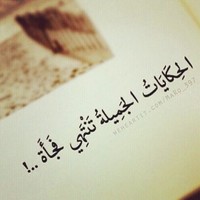 الحِكَايَاتُ الجَمِيلةُ تَنْتَهِي فَجْأَة ..!